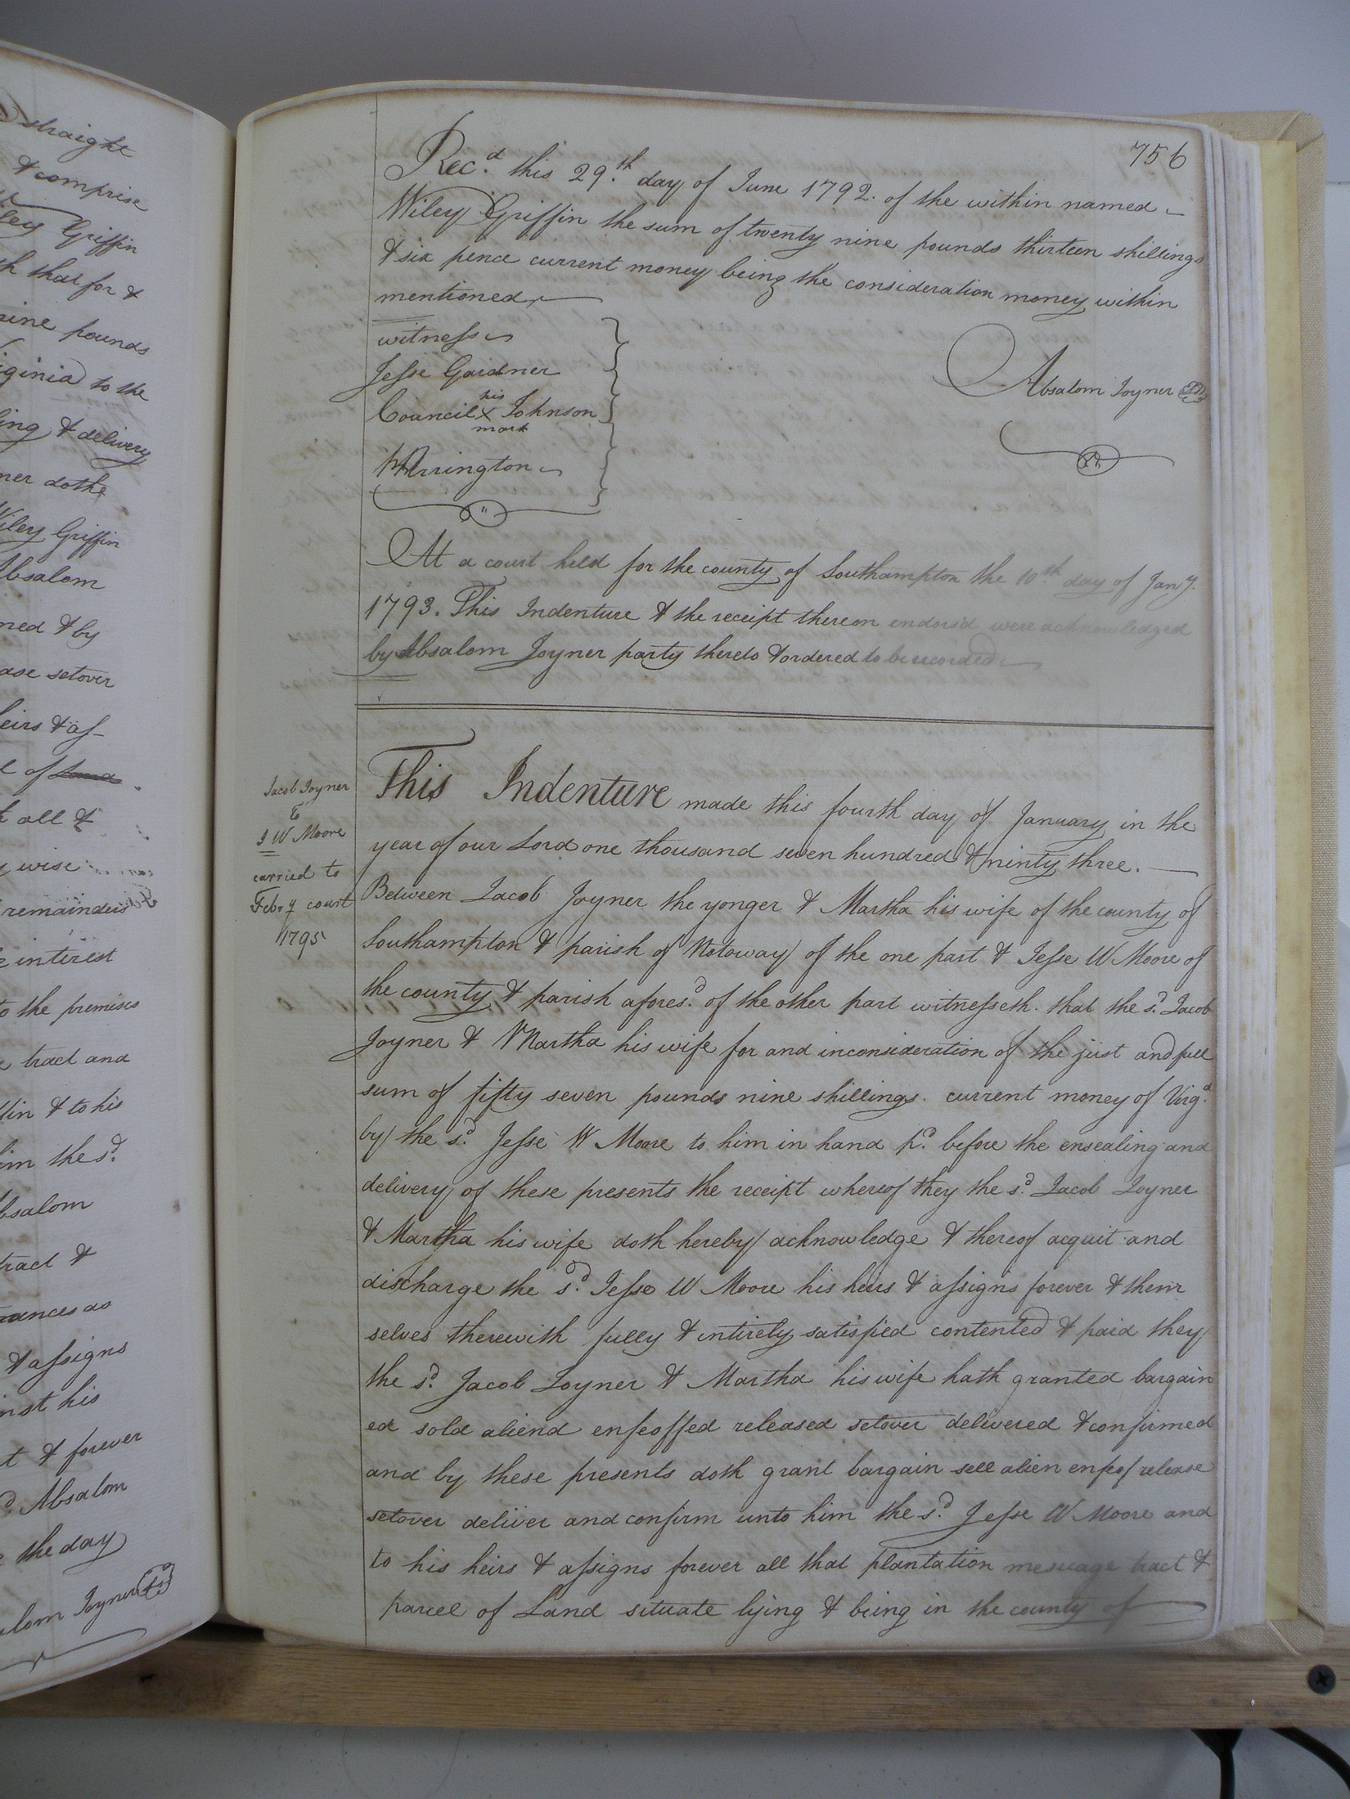 straight
& comprise
Griffin
that for &
nine pounds
to the
& delivery
doth
Wiley Griffin
Absalom
& by
setover
heirs & as-
of Land
all &
wise
remainders
interest
to the premises
tract and
& to his
him the sd.
Absalom
tract &
& assigns
his
& forever
Absalom
the day
Joyner
756
Recd. this 29.th day of June 1792. of the within named
Wiley Griffin the sum of twenty nine pounds thirteen shillings
& six pence current money being the consideration money within
mentioned
witness
Jesse Gardner
his
Council X Johnson
mark
Arrington
Absalom Joyner
At a court held for the county of Southampton the 10th day of Jany.
1793. This Indenture & the receipt thereon endorsd were acknowledged
by Absalom Joyner party thereto & ordered to be recorded
Jacob Joyner
to
J W Moore
carried to
Feby court
1795
This Indenture made this fourth day of January in the
year of our Lord one thousand seven hundred & ninty three.
Between Jacob Joyner the yonger & Martha his wife of the county of
Southampton & parish of Notoway of the one part & Jesse W Moore of
the county & parish aforesd. of the other part witnesseth. that the sd. Jacob
Joyner & Martha his wife for and inconsideration of the just and full
sum of fifty seven pounds nine shillings. current money of Virga.
by the sd. Jesse W Moore to him in hand pd. before the ensealing and
delivery of these presents the receipt whereof they the sd. Jacob Joyner
& Martha his wife doth hereby acknowledge & thereof acquit and
discharge the sd. Jesse W Moore his heirs & assigns forever & them
selves therewith fully & intirely satisfied contented & paid they
the sd. Jacob Joyner & Martha his wife hath granted bargain
ed sold aliend enfeoffed released setover delivered & confirmed
and by these presents doth grant bargain sell alien enfeof release
setover deliver and confirm unto him the sd. Jesse W Moore and
to his heirs & assigns forever all that plantation mesuage tract &
parcel of Land situate lying & being in the county of